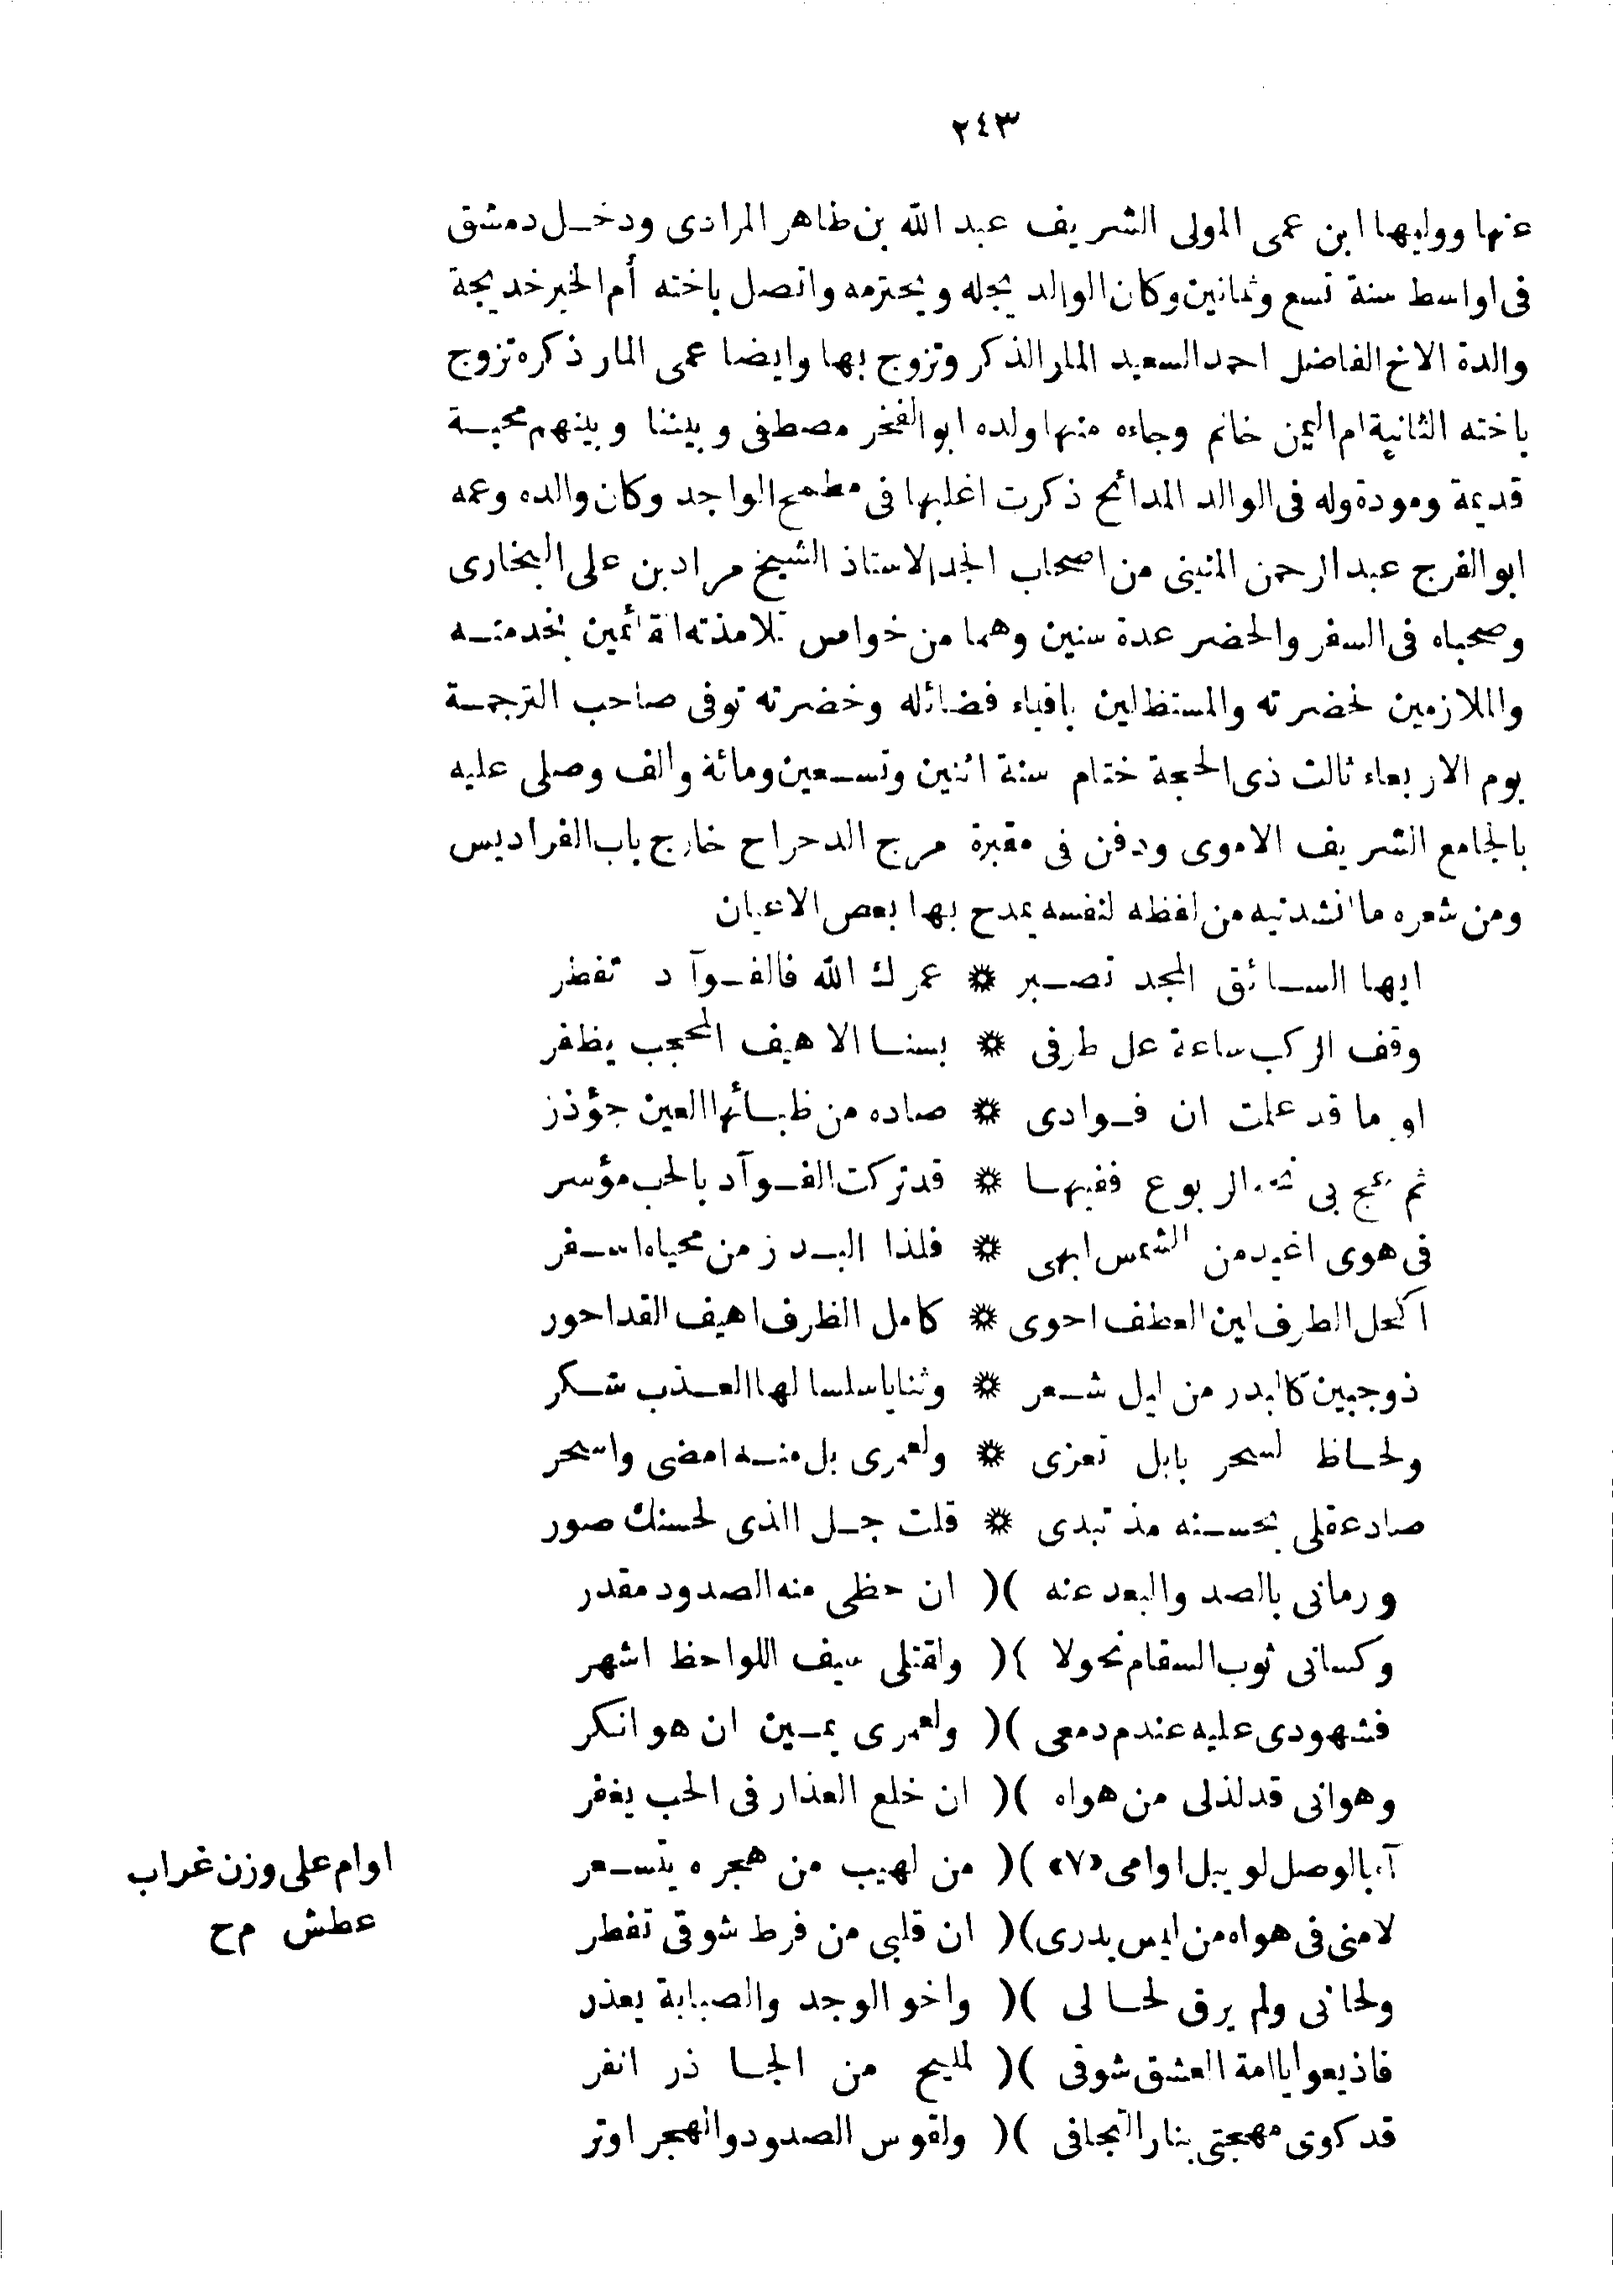 ٢٤٣
عنها ووليها ابن عمى المولى الشريف عبد الله بن طاهر المرادى ودخل دمشق
فى اواسط سنة تسع وثمانين وكان الوالد يجله ويحترمه واتصل باخته أم الخير خديجة
والدة الاخ الفاضل احمد السعيد المار الذكر وتزوج بها وايضا عمى المار ذكره تزوج
باخته الثانية ام اليمن خانم وجاءه منها ولده ابو الفخر مصطفى وبيننا وبينهم محبة
قديمة ومودة وله فى الوالد المدائح ذكرت اغلبها فى مطمح الواجد وكان والده وعمه
ابو الفرج عبد الرحمن المنينى من اصحاب الجد الاستاذ الشيخ مراد بن على البخارى
وصحباه فى السفر والحضر عدة سنين وهما من خواص تلامذته القائمين بخدمته
والملازمين لحضرته والمستظلين بافياء فضائله وخضرته توفى صاحب الترجمة
يوم الاربعاء ثالث ذى الحجة ختام سنة اثنين وتسعين ومائة والف وصلى عليه
بالجامع الشريف الاموى ودفن فى مقبرة مرج الدحراح خارج باب الفراديس
ومن شعره ما انشدنيه من لفظه لنفسه يمدح بها بعض الاعيان
ايها السائق المجد تصبر ❊ عمرك الله فالفوآد تفطر
وقف الركب ساعة عل طرفى ❊ بسنا الاهيف المحجب يظفر
او ما قد علمت ان فوادى ❊ صاده من ظبائها العين جؤذر
ثم عج بى نحو الربوع ففيها ❊ قد تركت الفوآد بالحب مؤسر
فى هوى اغيد من الشمس ابهى ❊ فلذا البدر من محياه اسفر
اكحل الطرف لين العطف احوى ❊ كامل الظرف اهيف القد احور
ذو جبين كالبدر من ليل شعر ❊ وثنايا سلسالها العذب شكر
ولحاظ لسحر بابل تعزى ❊ ولعمرى بل منه امضى واسحر
صاد عقلى بحسنه مذ تبدى ❊ قلت جل الذى لحسنك صور
ورمانى بالصد والبعد عنه )( ان حظى منه الصدود مقدر
وكسانى ثوب السقام نحولا )( ولقتلى سيف اللواحظ اشهر
فشهودى عليه عندم دمعى )( ولعمرى يمين ان هو انكر
وهوانى قد لذلى من هواه )( ان خلع العذار فى الحب يغفر
آه بالوصل لو يبل اوامى «٧» )( من لهيب من هجره يتسعر
لامنى فى هواه من ليس يدرى )( ان قلبى من فرط شوقى تفطر
ولحانى ولم يرق لحالى )( واخو الوجد والصبابة يعذر
فاذيعوا ياامة العشق شوقى )( لمليح من الجا ذر انفر
قد كوى مهجتى بنار التجافى )( ولقوس الصدود والهجر اوتر
اوام على وزن غراب
عطش م ح